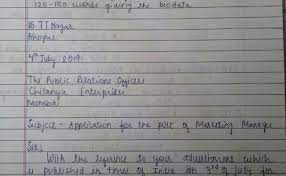 125-150 words giving the biodata
16 TT Nagar
Bhopal
4th July 2019
The Public Relations Officer
Chitanya Enterprises
Mumbai
Subject - Application for the post of Marketing Manager
Sir,
With the refrence to your advertisement which
is published in times of India on 3rd of July for